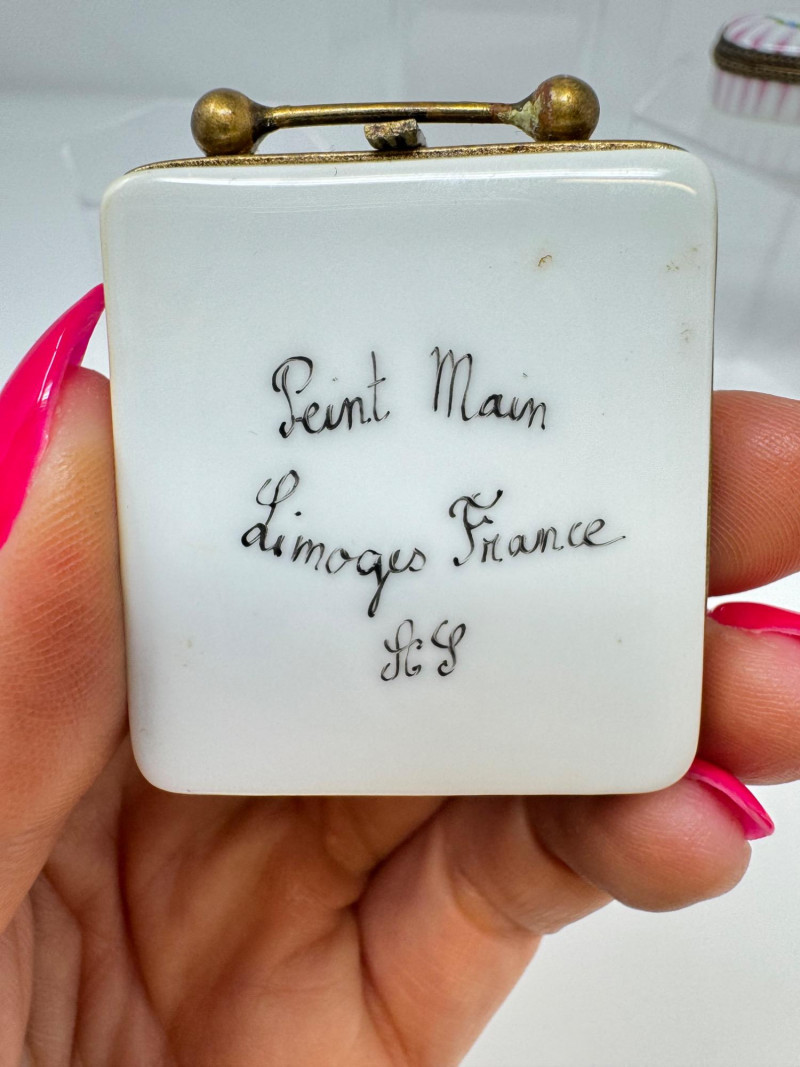 Peint Main
Limoges France